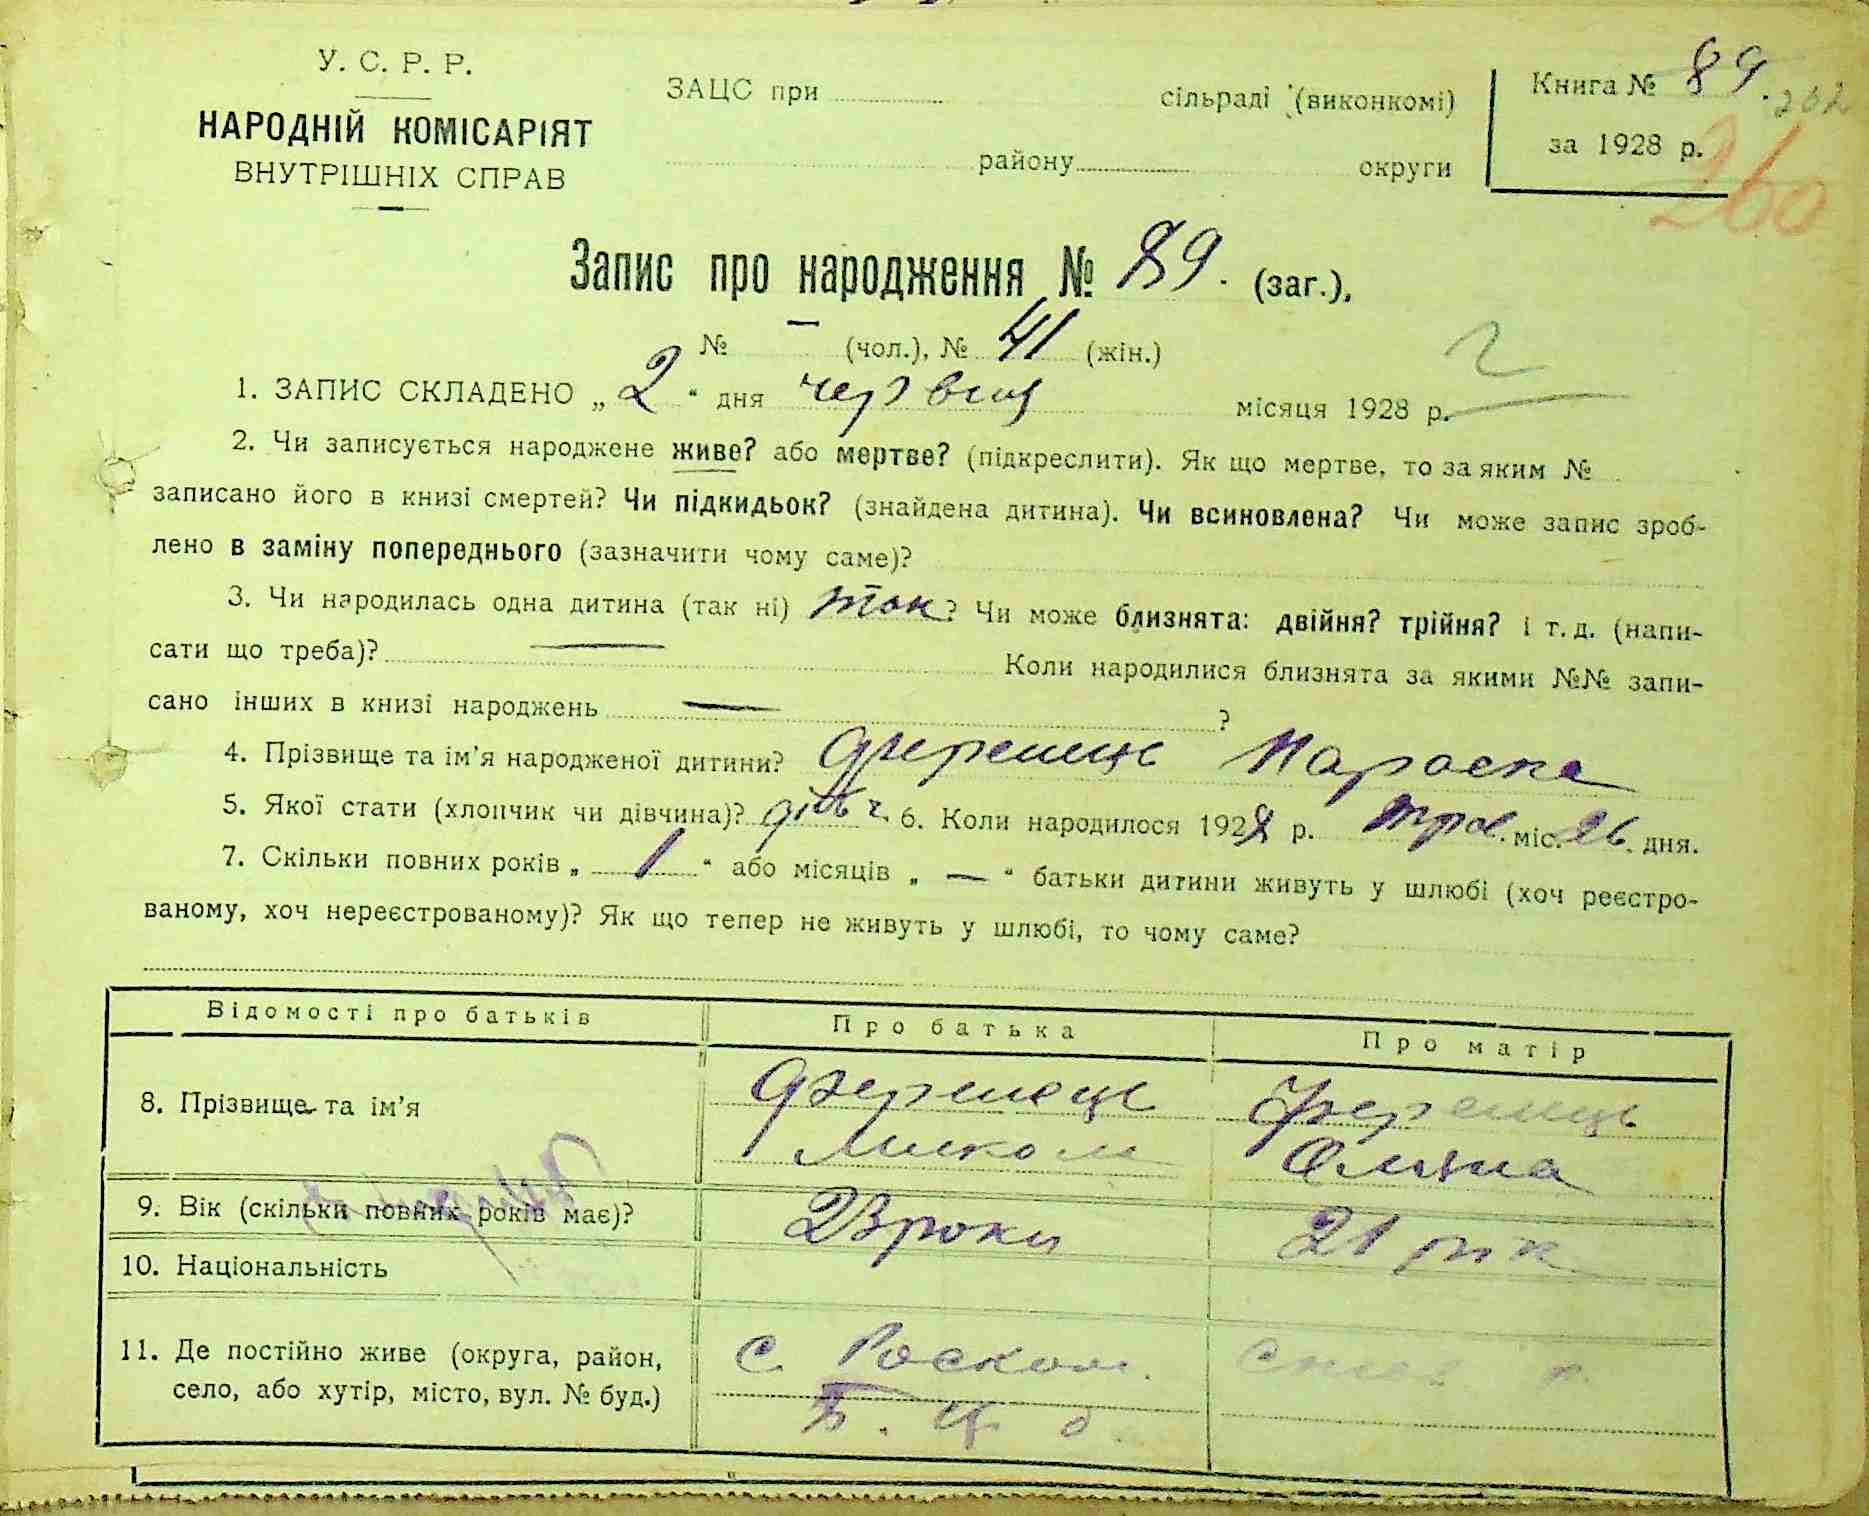 У. С. Р. Р.
НАРОДНІЙ КОМІСАРІЯТ
ВНУТРІШНІХ СПРАВ
ЗАЦС при сільраді (виконкомі)
району округи
Книга № 89.
за 1928 р.
260
Запис про народження № 89. (заг.),
№ — (чол.), № 41 (жін.)
1. ЗАПИС СКЛАДЕНО „2“ дня червня місяця 1928 р.
2. Чи записується народжене живе? або мертве? (підкреслити). Як що мертве, то за яким №
записано його в книзі смертей? Чи підкидьок? (знайдена дитина). Чи всиновлена? Чи може запис зроб-
лено в заміну попереднього (зазначити чому саме)?
3. Чи народилась одна дитина (так ні) так? Чи може близнята: двійня? трійня? і т. д. (напи-
сати що треба)? — Коли народилися близнята за якими №№ запи-
сано інших в книзі народжень — ?
4. Прізвище та ім'я народженої дитини? Параска
5. Якої стати (хлопчик чи дівчина)? дівч. 6. Коли народилося 1928 р. трав. міс. 26. дня.
7. Скільки повних років „1“ або місяців „—“ батьки дитини живуть у шлюбі (хоч реєстро-
ваному, хоч нереєстрованому)? Як що тепер не живуть у шлюбі, то чому саме?
Відомості про батьків Про батька Про матір
8. Прізвище та ім'я
9. Вік (скільки повних років має)? 23 роки 21 рік
10. Національність
11. Де постійно живе (округа, район, с.
село, або хутір, місто, вул. № буд.)